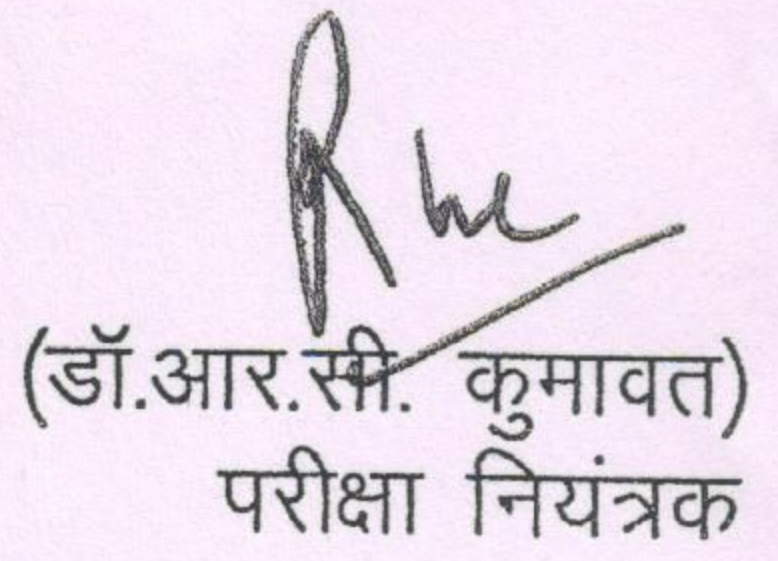 (डॉ.आर.सी. कुमावत)
परीक्षा नियंत्रक